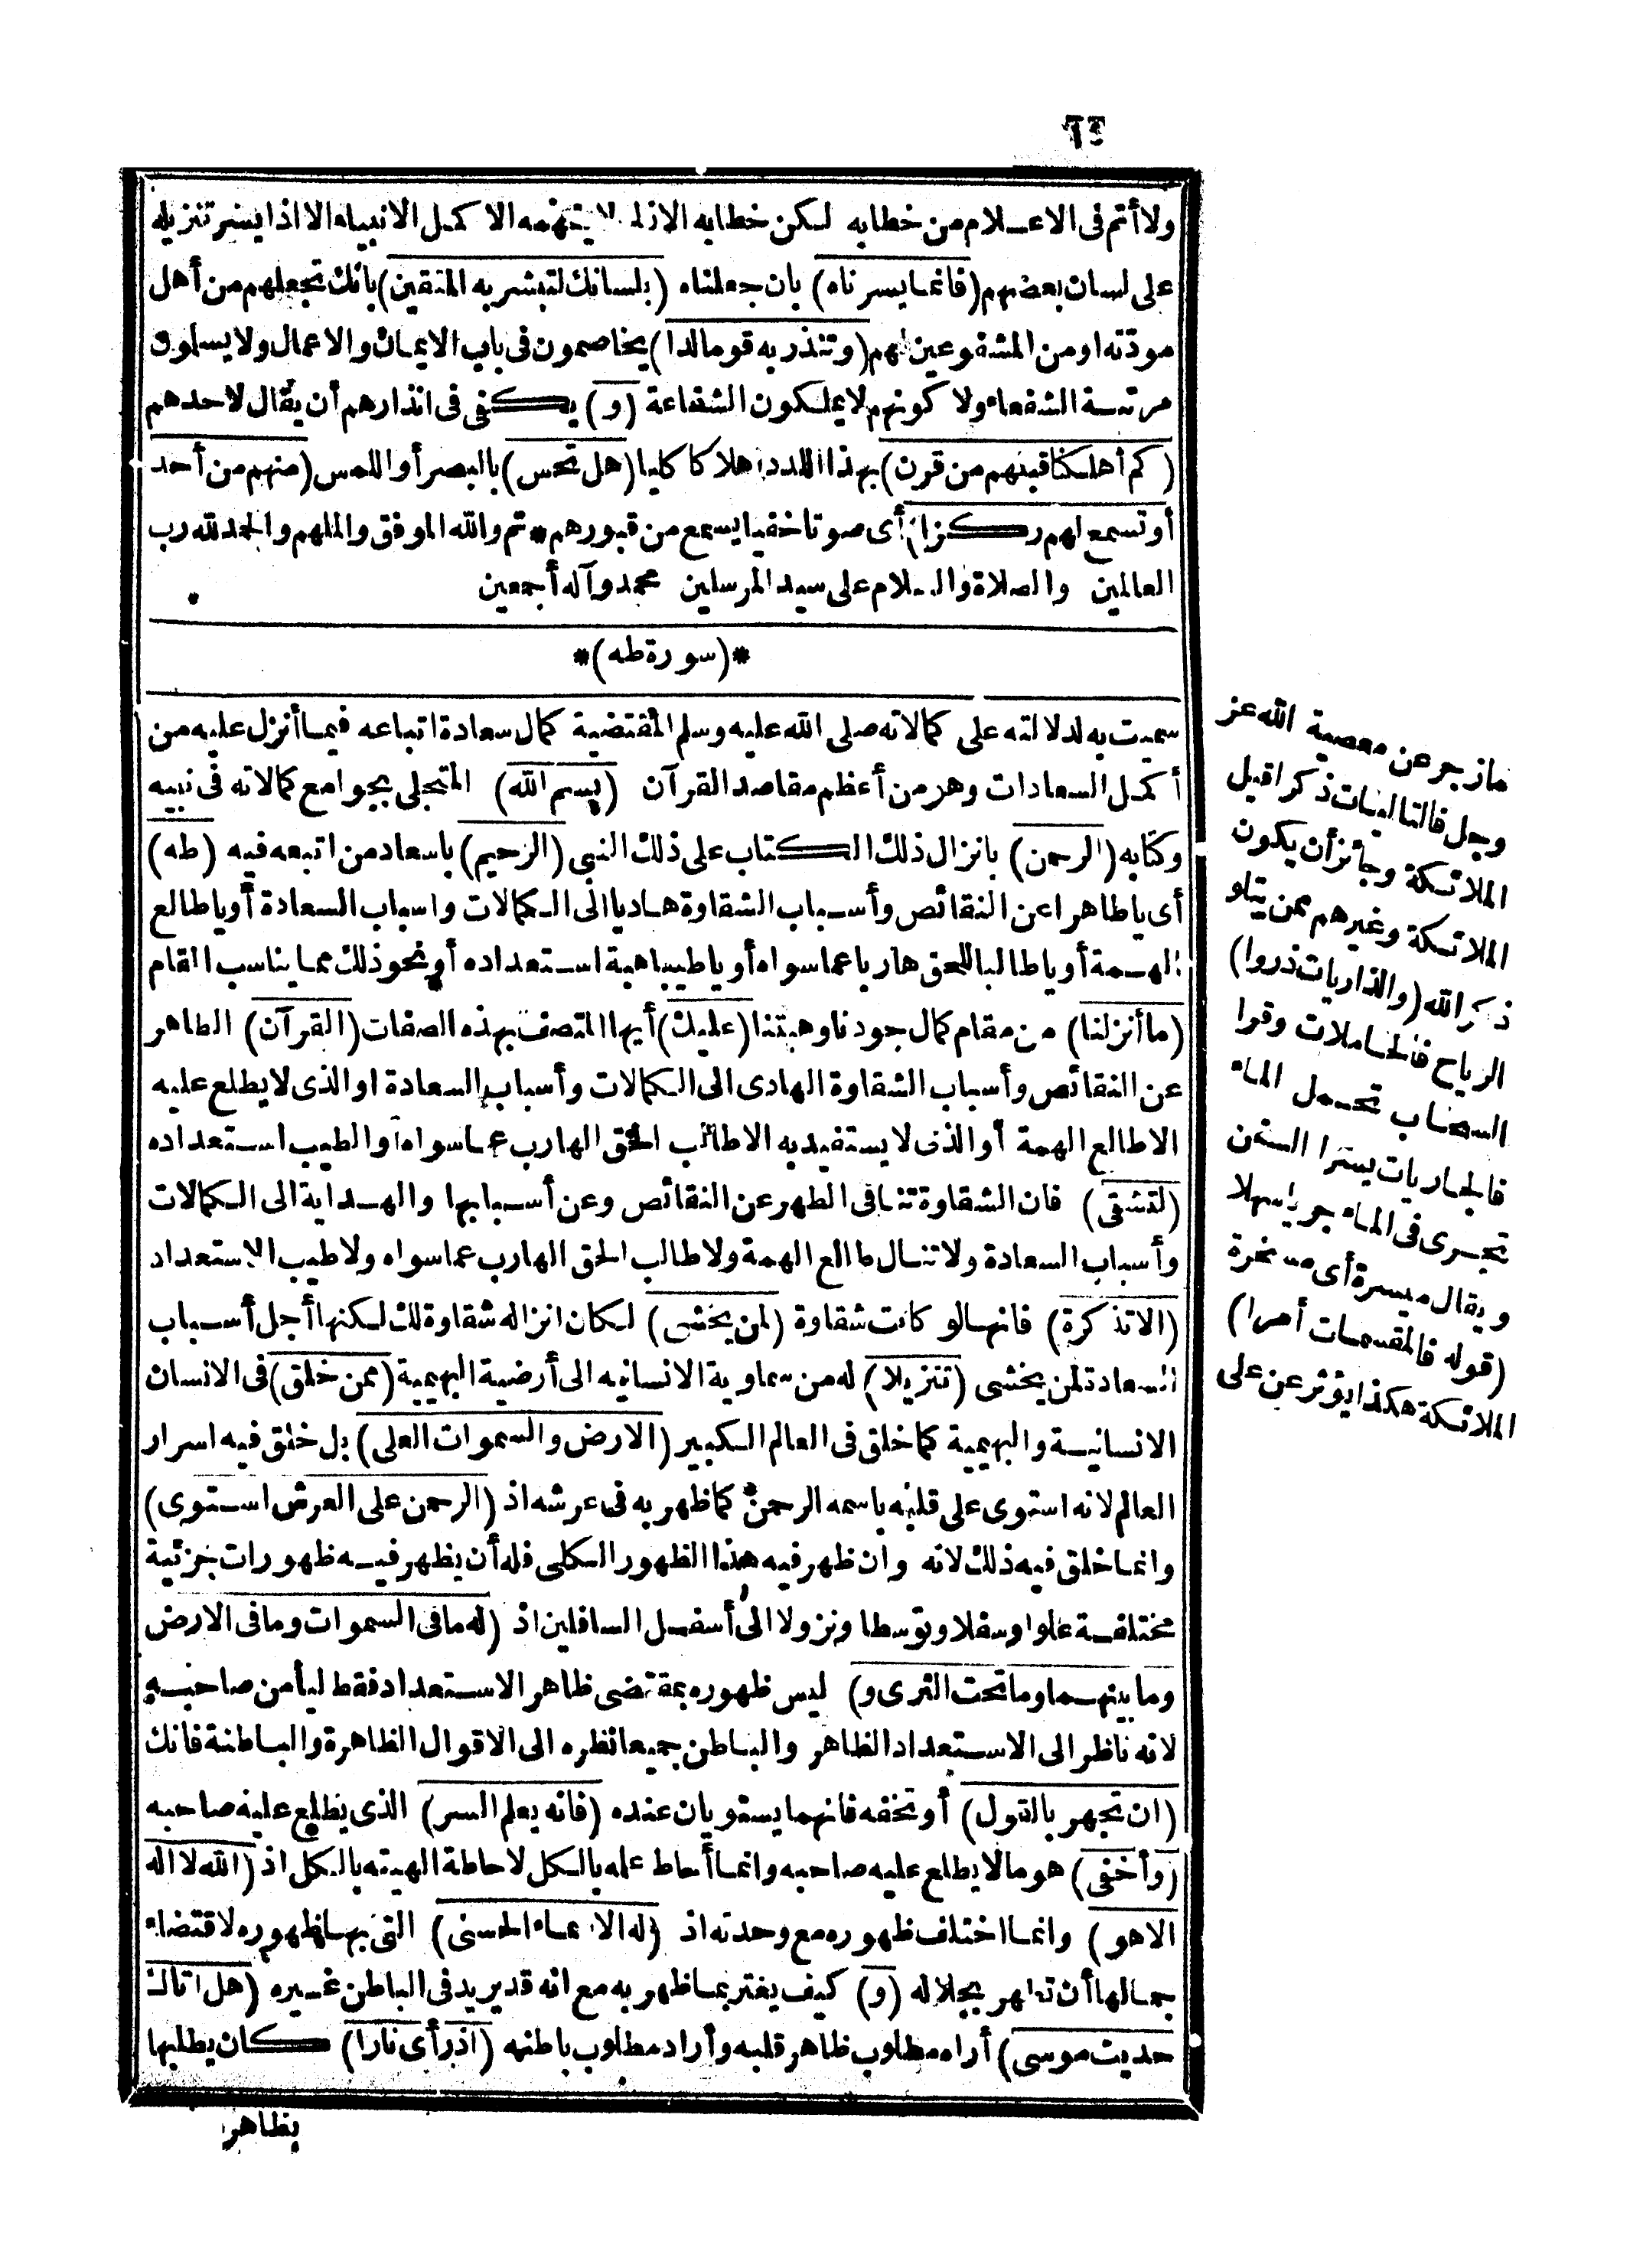 ولا أتم فى الاعلام من خطابه لكن خطابه الازلى لا يفهمه الا كمل الانبياء الا اذا يسر تنزيله
على لسان بعضهم (فانما يسرناه) بان جعلناه (بلسانك لتبشر به المتقين) بانك تجعلهم من أهل
مودّته او من المشفوعين لهم (وتنذر به قوما لدا) يخاصمون فى باب الايمان والاعمال ولا يسلمون
مرتبة الشفعاء ولا كونهم لا يملكون الشفاعة (و) يكفى فى انذارهم أن يقال لاحدهم
(كم أهلكنا قبلهم من قرن) بهذا اللدد اهلاكا كليا (هل تحس) بالبصر أو اللمس (منهم من أحد
أو تسمع لهم ركزا) أى صوتا خفيا يسمع من قبورهم * تم والله الموفق والملهم والحمد لله رب
العالمين والصلاة والسلام على سيد المرسلين محمد وآله أجمعين *
*(سورة طه)*
سميت به لدلالته على كمالاته صلى الله عليه وسلم المقتضية كمال سعادة اتباعه فيما أنزل عليه من
أكمل السعادات وهو من أعظم مقاصد القرآن (بسم الله) المتجلى بجوامع كمالاته فى نبيه
وكتابه (الرحمن) بانزال ذلك الكتاب على ذلك النبى (الرحيم) باسعاد من اتبعه فيه (طه)
أى يا طاهرا عن النقائص وأسباب الشقاوة هاديا الى الكمالات واسباب السعادة أو يا طالع
الهمة أو يا طالبا للحق هاربا عما سواه أو يا طيبا هيئة استعداده أو نحو ذلك مما يناسب المقام
(ما أنزلنا) من مقام كمال جودنا وهبتنا (عليك) أيها المتصف بهذه الصفات (القرآن) الطاهر
عن النقائص وأسباب الشقاوة الهادى الى الكمالات وأسباب السعادة او الذى لا يطلع عليه
الا طالع الهمة أو الذى لا يستفيد به الا طالب الحق الهارب عما سواه أو الطيب استعداده
(لتشقى) فان الشقاوة تنافى الطهر عن النقائص وعن أسبابها والهداية الى الكمالات
وأسباب السعادة ولا تنال طالع الهمة ولا طالب الحق الهارب عما سواه ولا طيب الاستعداد
(الا تذكرة) فانها لو كانت شقاوة (لمن يخشى) لكان انزاله شقاوة لك لكنها أجل أسباب
السعادة لمن يخشى (تنزيلا) له من سماوية الانسانيه الى أرضية البهيمية (ممن خلق) فى الانسان
الانسانية والبهيمية كما خلق فى العالم الكبير (الارض والسموات العلى) بل خلق فيه اسرار
العالم لانه استوى على قلبه باسمه الرحمن كما ظهر به فى عرشه اذ (الرحمن على العرش استوى)
وانما خلق فيه ذلك لانه وان ظهر فيه هذا الظهور الكلى فله أن يظهر فيه ظهورات جزئية
مختلفة علوا وسفلا وتوسطا ونزولا الى أسفل السافلين اذ (له ما فى السموات وما فى الارض
وما بينهما وما تحت الثرى و) ليس ظهوره بمقتضى ظاهر الاستعداد فقط ليأمن صاحبه
لانه ناظر الى الاستعداد الظاهر والباطن جميعا نظره الى الاقوال الظاهرة والباطنة فانك
(ان تجهر بالقول) أو تخفه فانهما يستويان عنده (فانه يعلم السر) الذى يطلع عليه صاحبه
(وأخفى) هو ما لا يطلع عليه صاحبه وانما أحاط علمه بالكل لاحاطة الهيته بالكل اذ (الله لا اله
الا هو) وانما اختلف ظهوره مع وحدته اذ (له الاسماء الحسنى) التى بها ظهوره لاقتضاء
جمالها أن تظهر بجلاله (و) كيف يغتر بما ظهر به مع انه قد يريد فى الباطن غيره (هل اتاك
حديث موسى) أراه مطلوب ظاهر قلبه وأراد مطلوب باطنه (اذ رأى نارا) كان يطلبها
بظاهر
ما زجر عن معصية الله عز
وجل فالتاليات ذكرا قيل
الملائكة وجائز أن يكون
الملائكة وغيرهم ممن يتلو
ذكر الله (والذاريات ذروا)
الرياح فالحاملات وقرا
السحاب تحمل الماء
فالجاريات يسرا السفن
تجرى فى الماء جريا سهلا
ويقال ميسرة أى مسخرة
(قوله فالمقسمات أمرا)
الملائكة هكذا يؤثر عن على